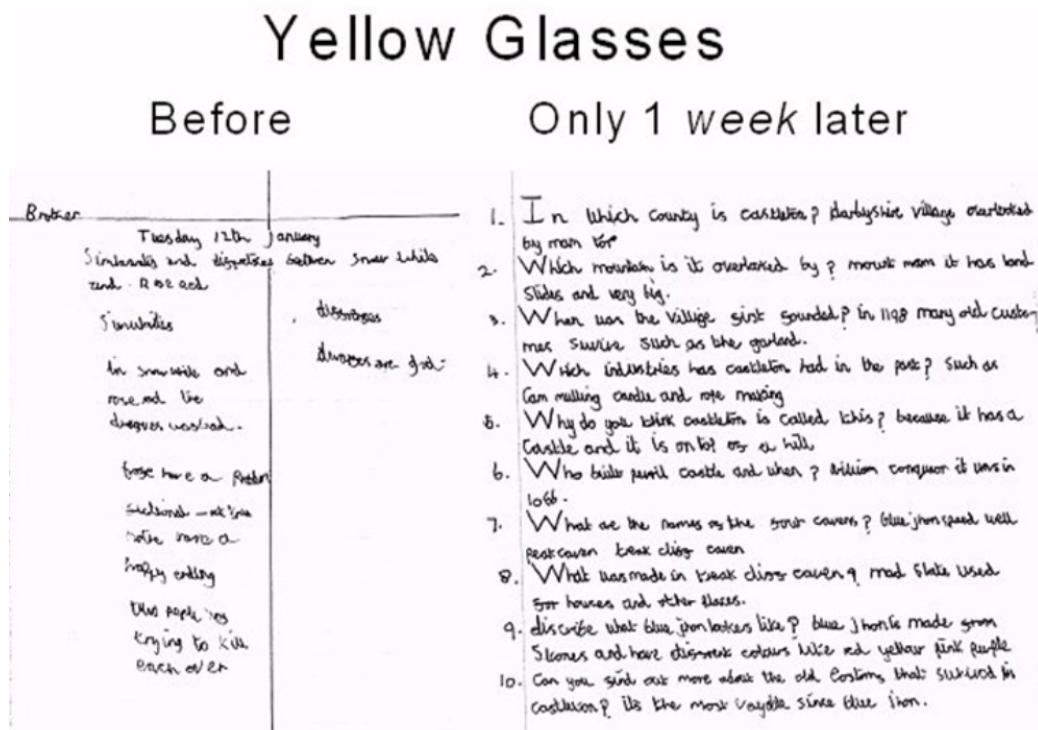 Yellow Glasses
Before
Only 1 week later
Brother
Tuesday 12th January
and between Snow While
and Rose red
in snow wite and
rose red the
have a
have a
happy ending
trying to kill
each over
1. In Which County is castleton? darbyshire village overlooked
by mam tor
2. Which mountain is it overlooked by? mount mam it has land
Slides and very big.
3. When was the village first founded? in 1198 many old custo
mes Survive Such as the garland.
4. Which industries has castleton had in the past? Such as
and rope making
5. Why do you think castleton is called this? because it has a
Castle and it is on top of a hill
6. Who built castle and when? conquor it was in
1066.
7. What are the names of the four cavens? blue jhon speed well
peak caven treak cliff caven
8. What was made in treak cliff caven? Slate used
for houses and other places.
9. discribe what blue jhon lookes like? blue jhon is made from
Stones and have colours like red yellow pink purple
10. Can you find out more about the old Costoms that in
castleton? its the most since blue jhon.